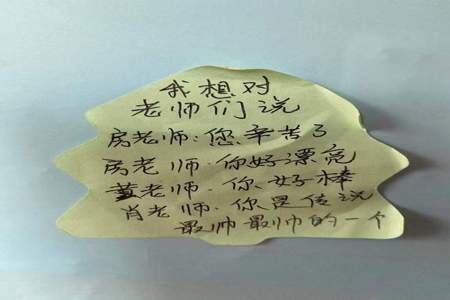 我想对
老师们说
房老师:您辛苦了
房老师·你好漂亮
黄老师·你好棒
肖老师·你是传说
最帅最帅的一个